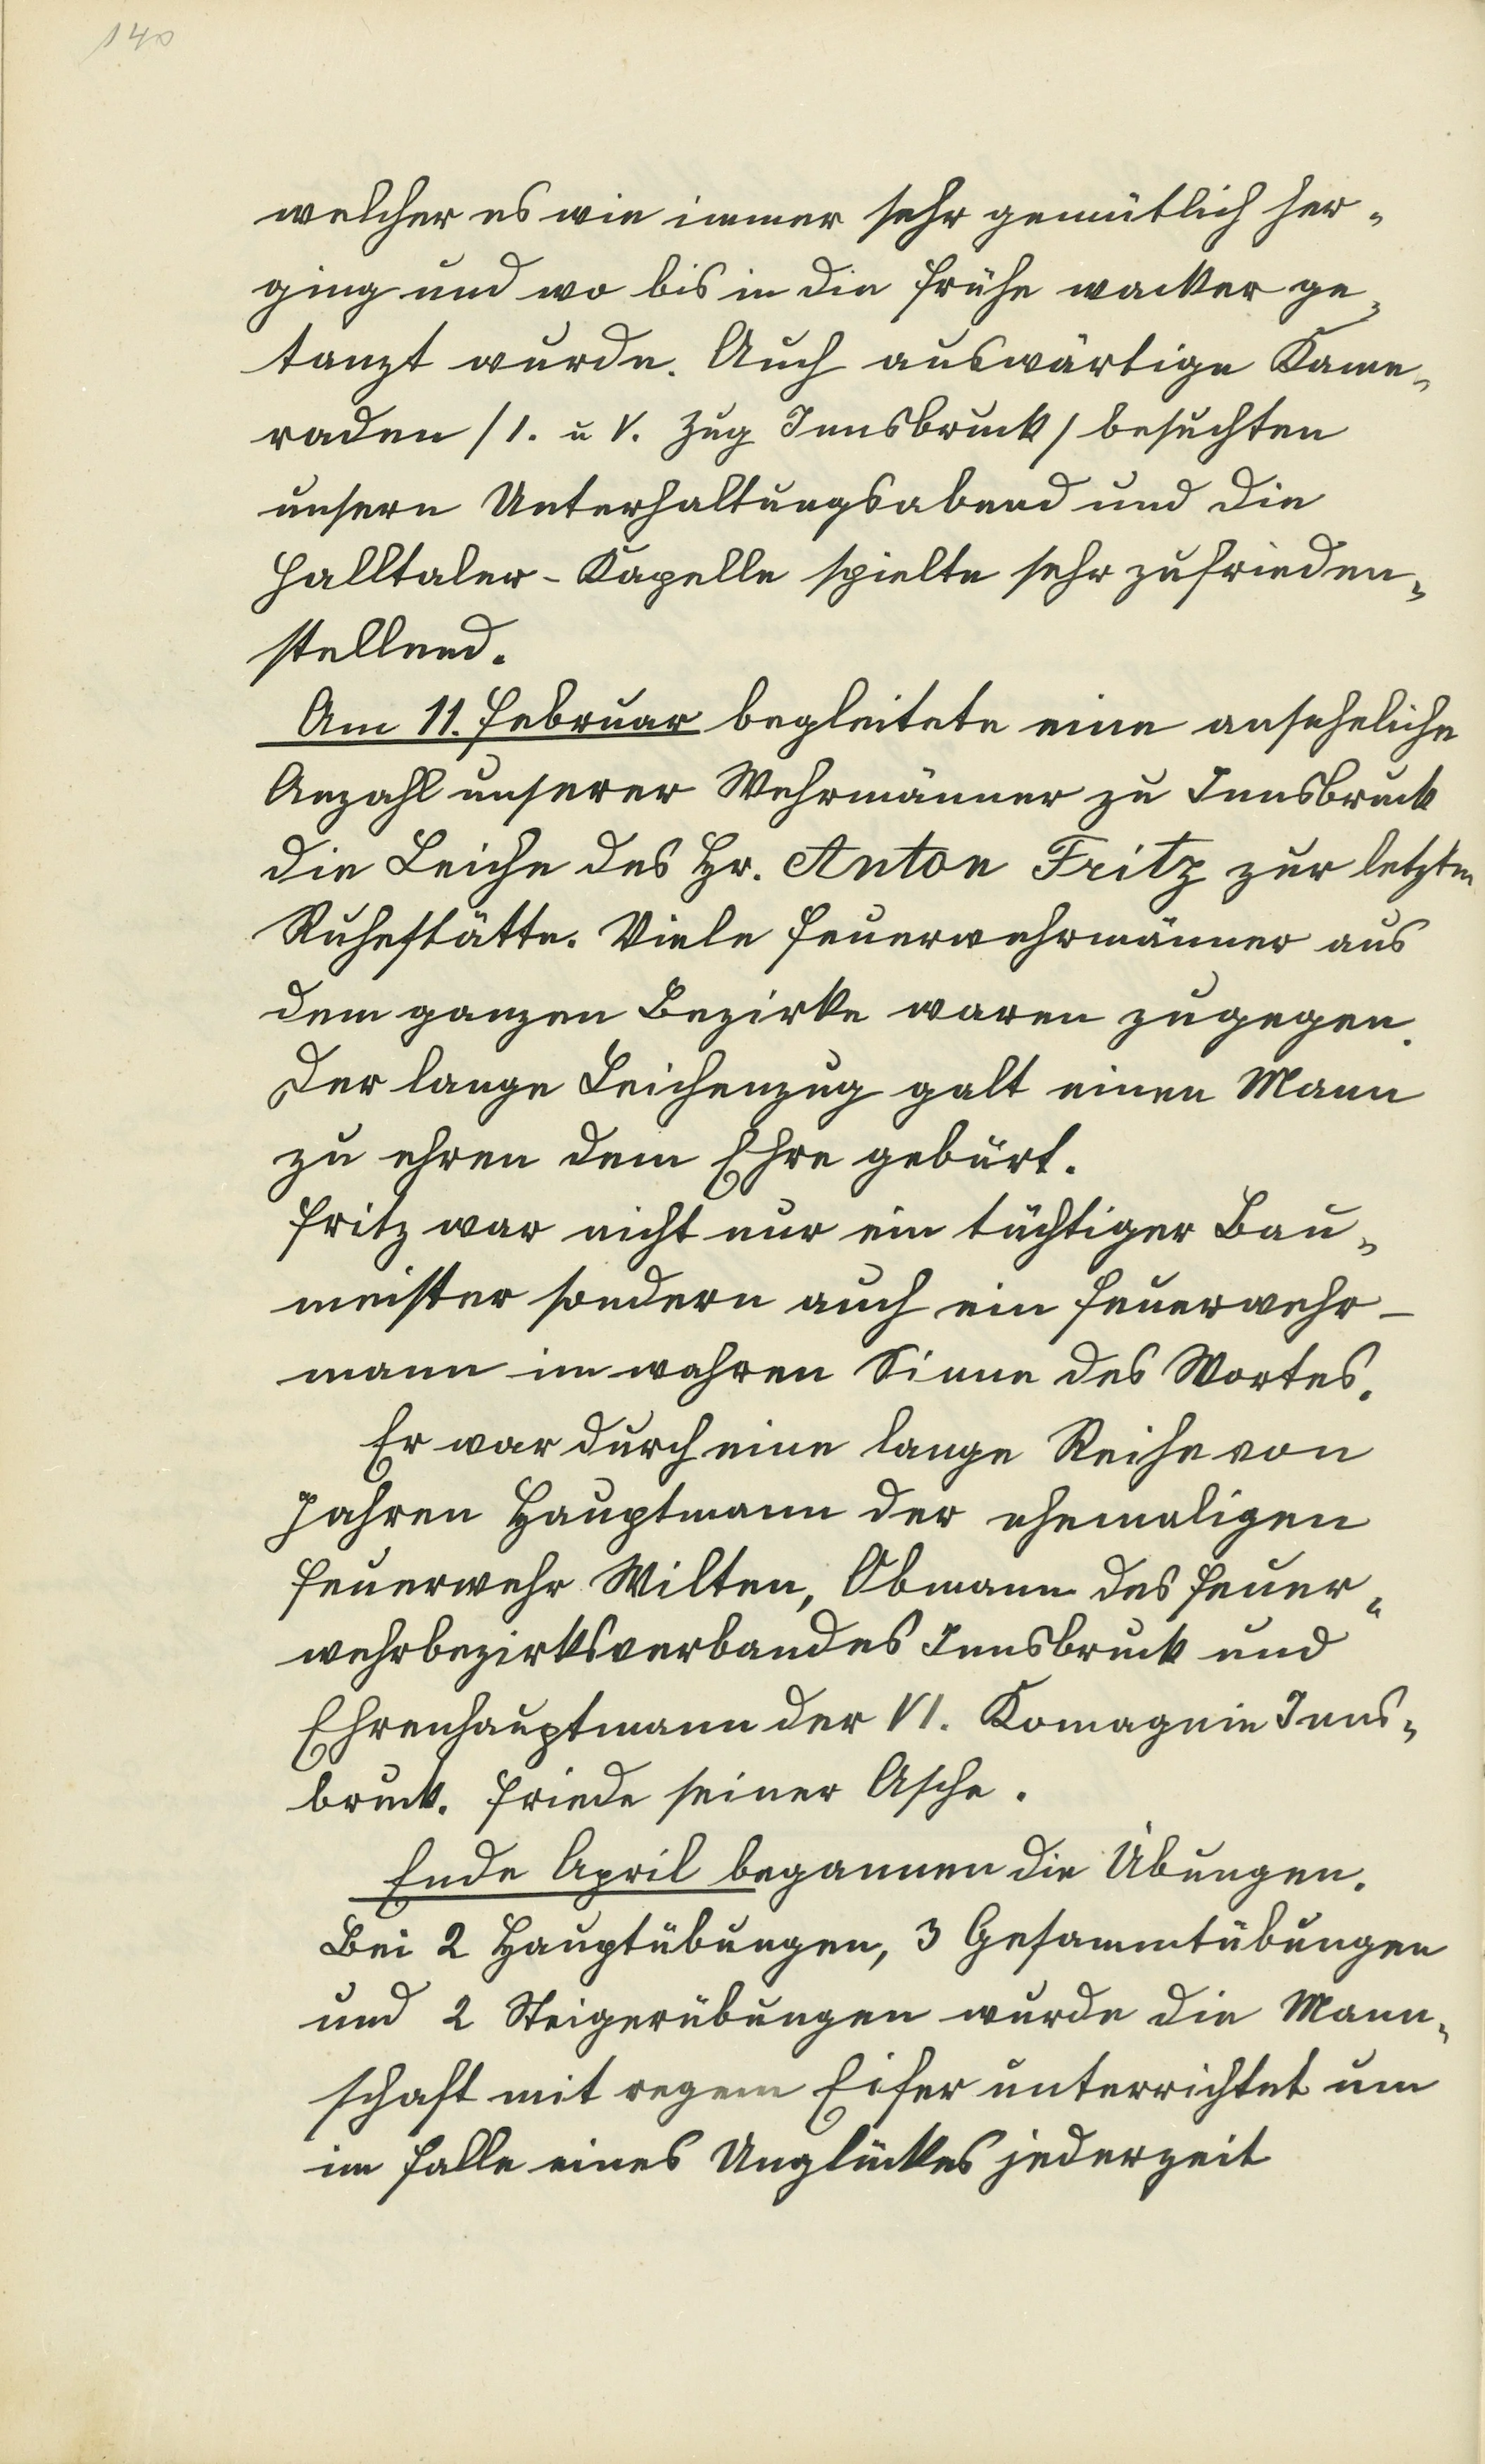 140
welcher es wie immer sehr gemütlich her-
ging und wo bis in die Frühe wacker ge-
tanzt wurde. Auch auswärtige Kame-
raden /I. u V. Zug Innsbruck/ besuchten
unsern Unterhaltungsabend und die
Halltaler-Kapelle spielte sehr zufrieden-
stellend.
Am 11. Februar begleitete eine ansehliche
Anzahl unserer Wehrmänner zu Innsbruck
die Leiche des Hr. Anton Fritz zur letzten
Ruhestätte. Viele Feuerwehrmänner aus
dem ganzen Bezirke waren zugegen.
Der lange Leichenzug galt einen Mann
zu ehren dem Ehre gebürt.
Fritz war nicht nur ein tüchtiger Bau-
meister sondern auch ein Feuerwehr-
mann im wahren Sinne des Wortes.
Er war durch eine lange Reihe von
Jahren Hauptmann der ehemaligen
Feuerwehr Wilten, Obmann des Feuer-
wehrbezirksverbandes Innsbruck und
Ehrenhauptmann der VI. Komagnie Inns-
bruck. Friede seiner Asche.
Ende April begannen die Übungen.
Bei 2 Hauptübungen, 3 Gesammtübungen
und 2 Steigerübungen wurde die Mann-
schaft mit regem Eifer unterrichtet um
im Falle eines Unglückes jederzeit